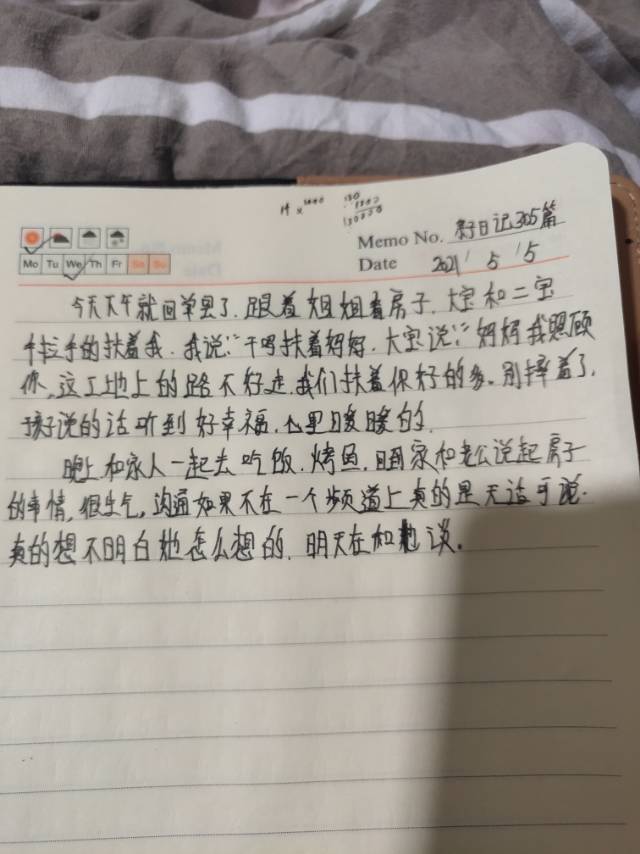 Memo No. 日记305篇
Mo Tu We Th Fr Sa Su
Date 2021 / 5 / 5
今天下午就回单县了.跟着姐姐看房子.大宝和二宝
手拉手的扶着我.我说:"干吗扶着妈妈.大宝说:"妈妈我照顾
你,这工地上的路不好走.我们扶着你好的多.别摔着了.
孩子说的话听到好幸福.心里暖暖的.
晚上和家人一起去吃饭.烤鱼.回家和老公说起房子
的事情,很生气,沟通如果不在一个频道上真的是无话可说.
真的想不明白她怎么想的.明天在和她谈.